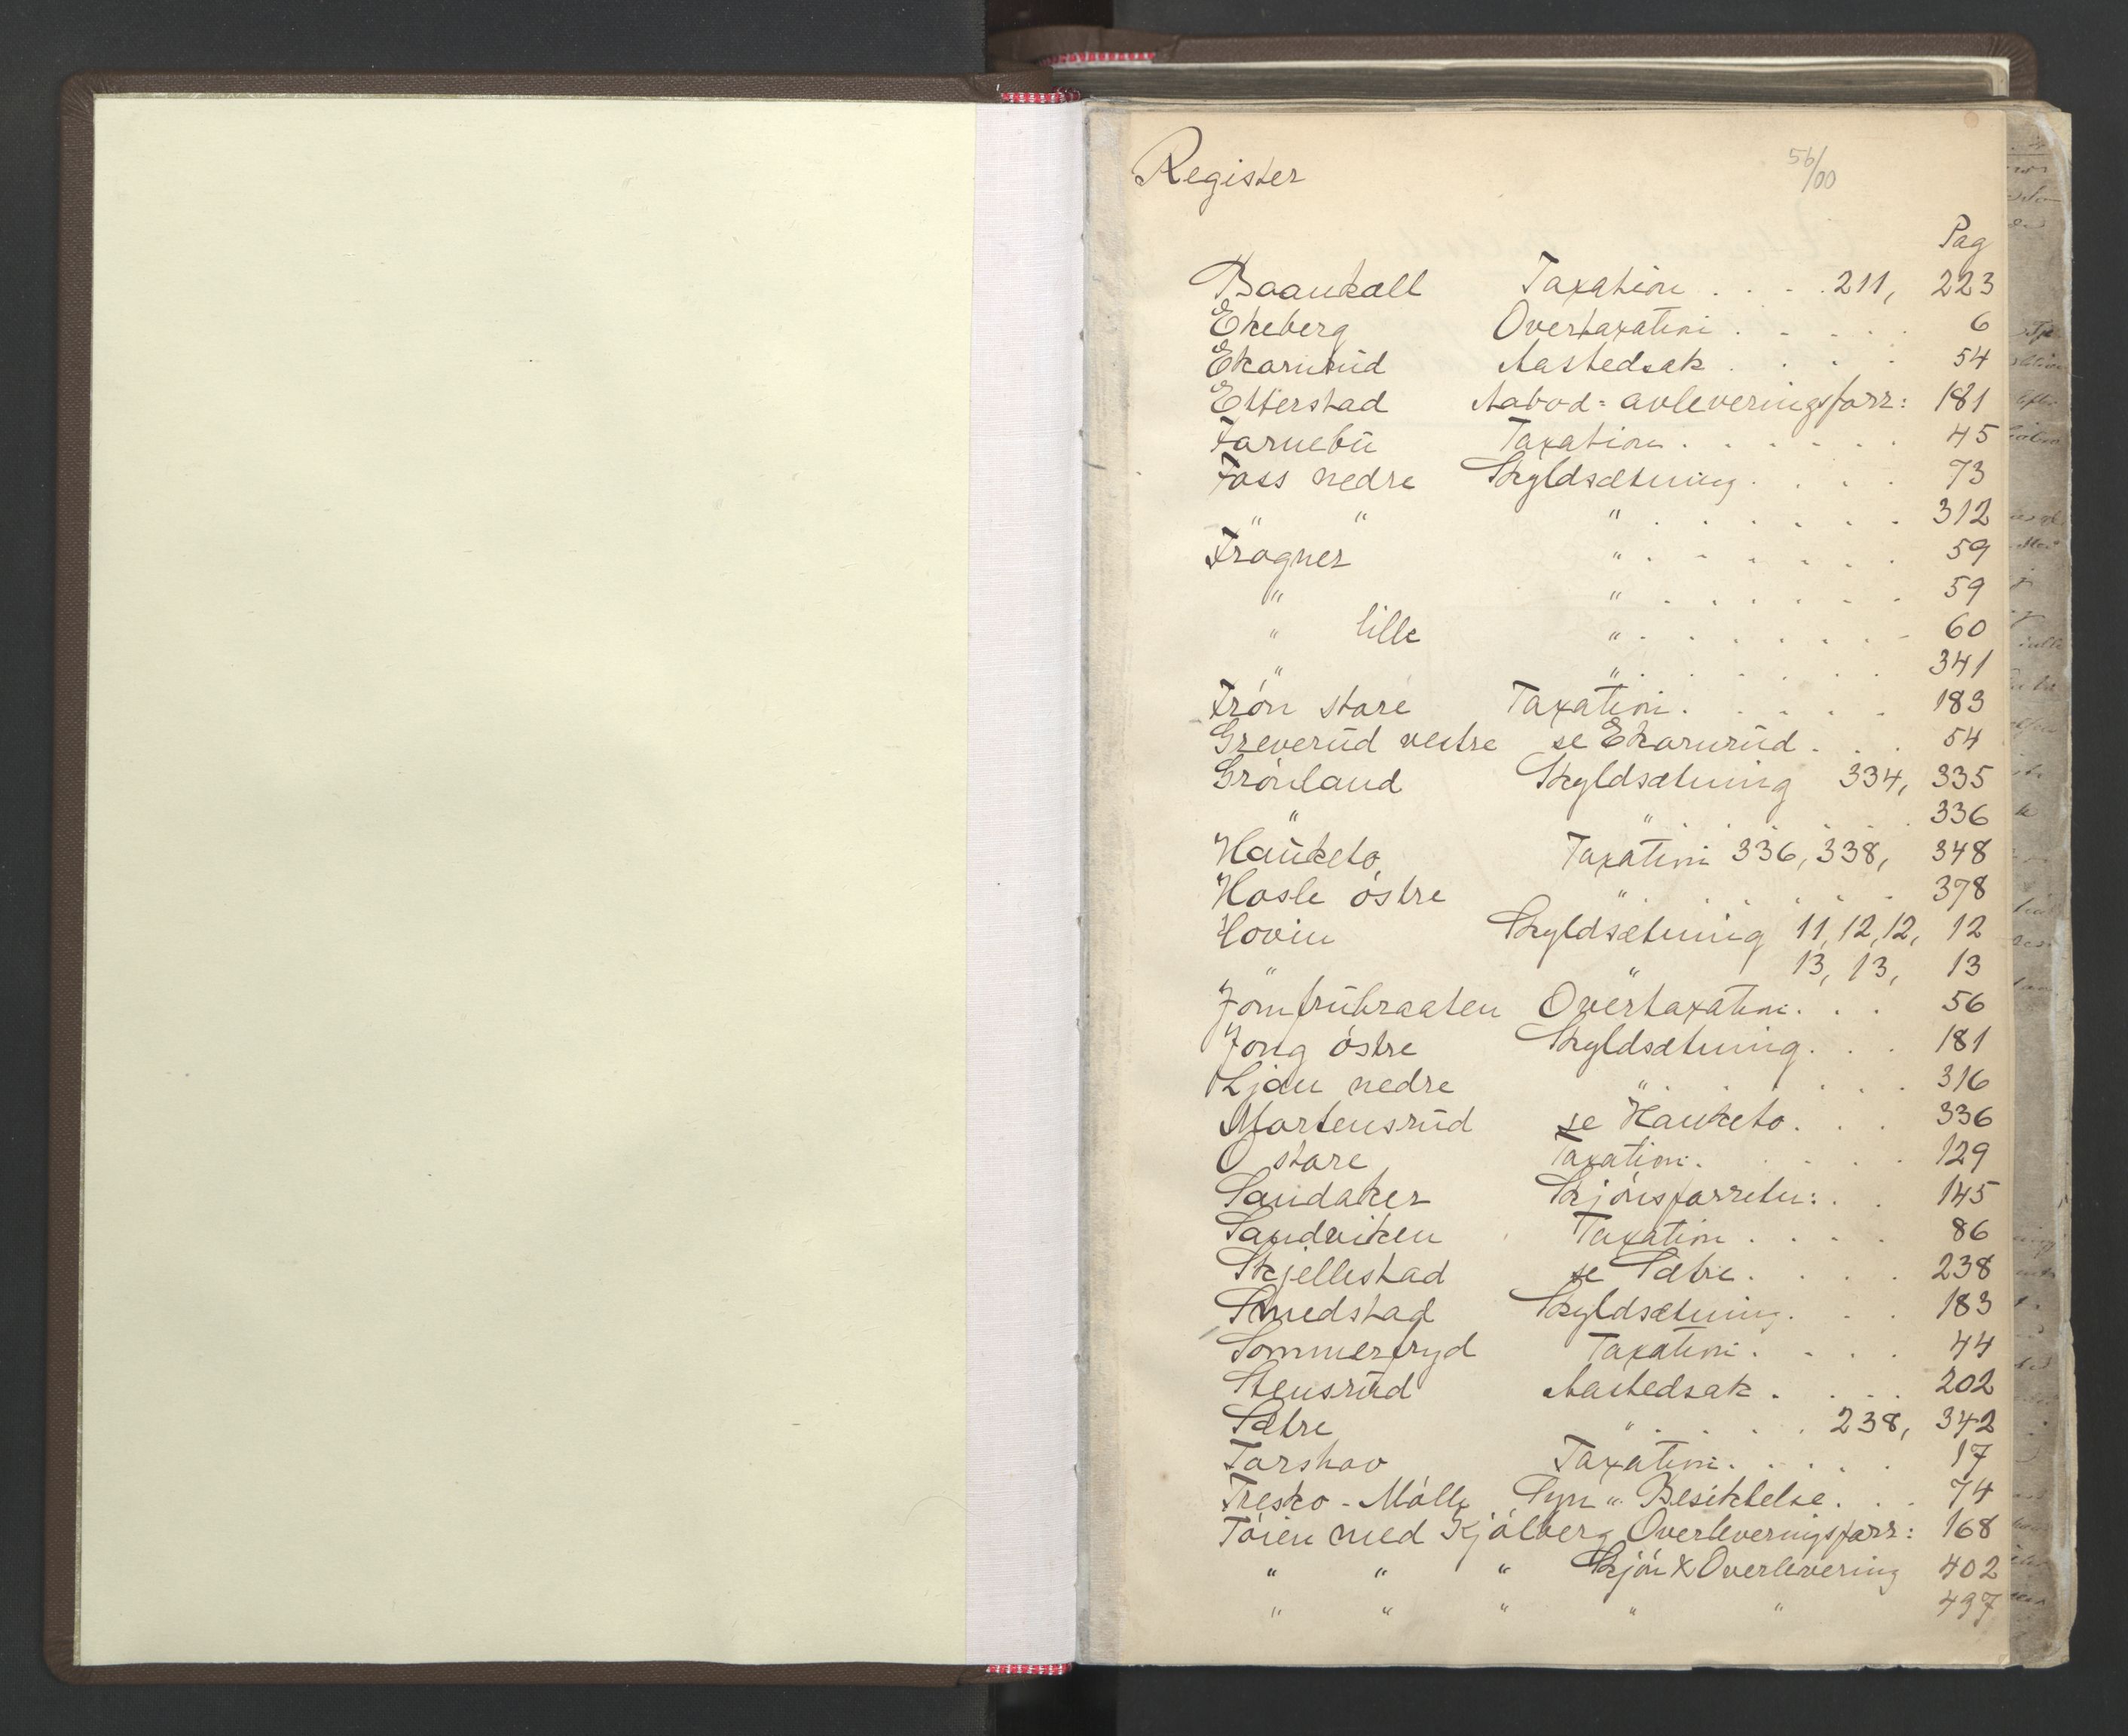 Register
56/00
Pag
Baankall Taxation . . . . 211, 223
Ekeberg Overtaxation . . . . . 6
Ekornrud Aastedsak . . . . 54
Etterstad Aabod= avleveringsforr: 181
Fornebu Taxation . . . . . . 45
Foss nedre Skyldsætning . . . . 73
" " " . . . . . . . 312
Frogner " . . . . . . . 59
" " . . . . . . . 59
" lille " . . . . . . . 60
" " . . . . . . . 341
Frøn store Taxation . . . . . 183
Greverud vestre se Ekornrud . . . 54
Grönland Skyldsætning 334, 335
" " . . . . . . 336
Hauketo Taxation 336, 338, 348
Hasle östre " . . . . . . 378
Hovin Skyldsætning 11, 12, 12, 12
" " 13, 13, 13
Jomfrubraaten Overtaxation . . . 56
Jong östre Skyldsætning . . . 181
Ljan nedre " . . . . . . 316
Mortensrud se Hauketo . . . 336
O store Taxation . . . . . 129
Sandaker Skjönsforretn: . . 145
Sandviken Taxation . . . . 86
Skjellestad se Sætre . . . . 238
Smedstad Skyldsætning . . . 183
Sommerfryd Taxation . . . . 44
Stensrud Aastedsak . . . . 202
Sætre " . . . . . 238, 342
Torshov Taxation . . . . . 17
Tresko-Mölle Syn " Besiktelse . . . 74
Töien med Kjölberg Overleveringsforr: 168
" " " Skjön & Overlevering 402
" " " " " 497